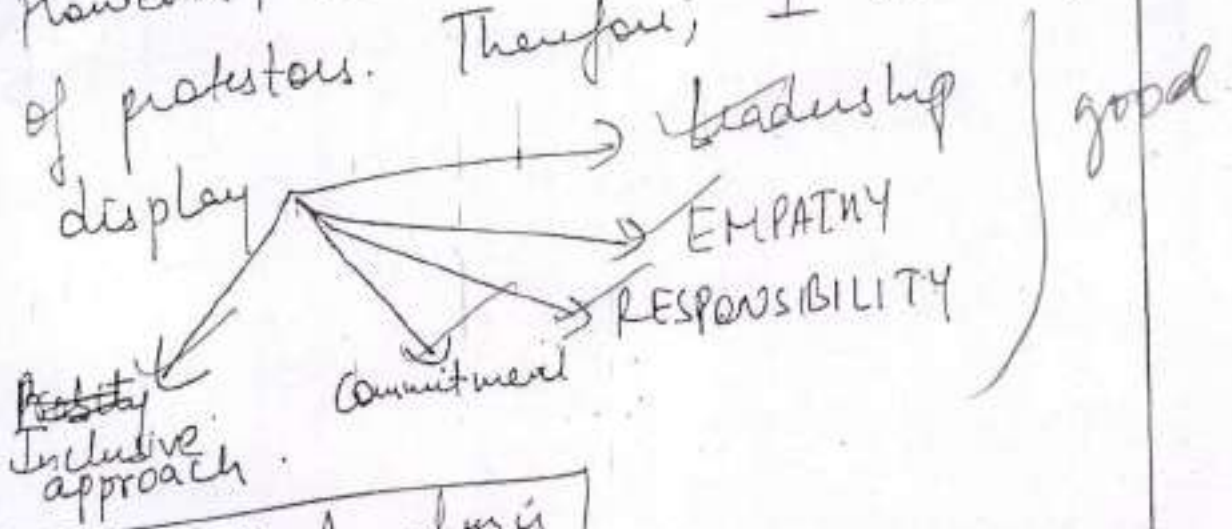 of protestors. Therefore, I
display
Leadership
good
EMPATHY
RESPONSIBILITY
Commitment
Inclusive
approach.